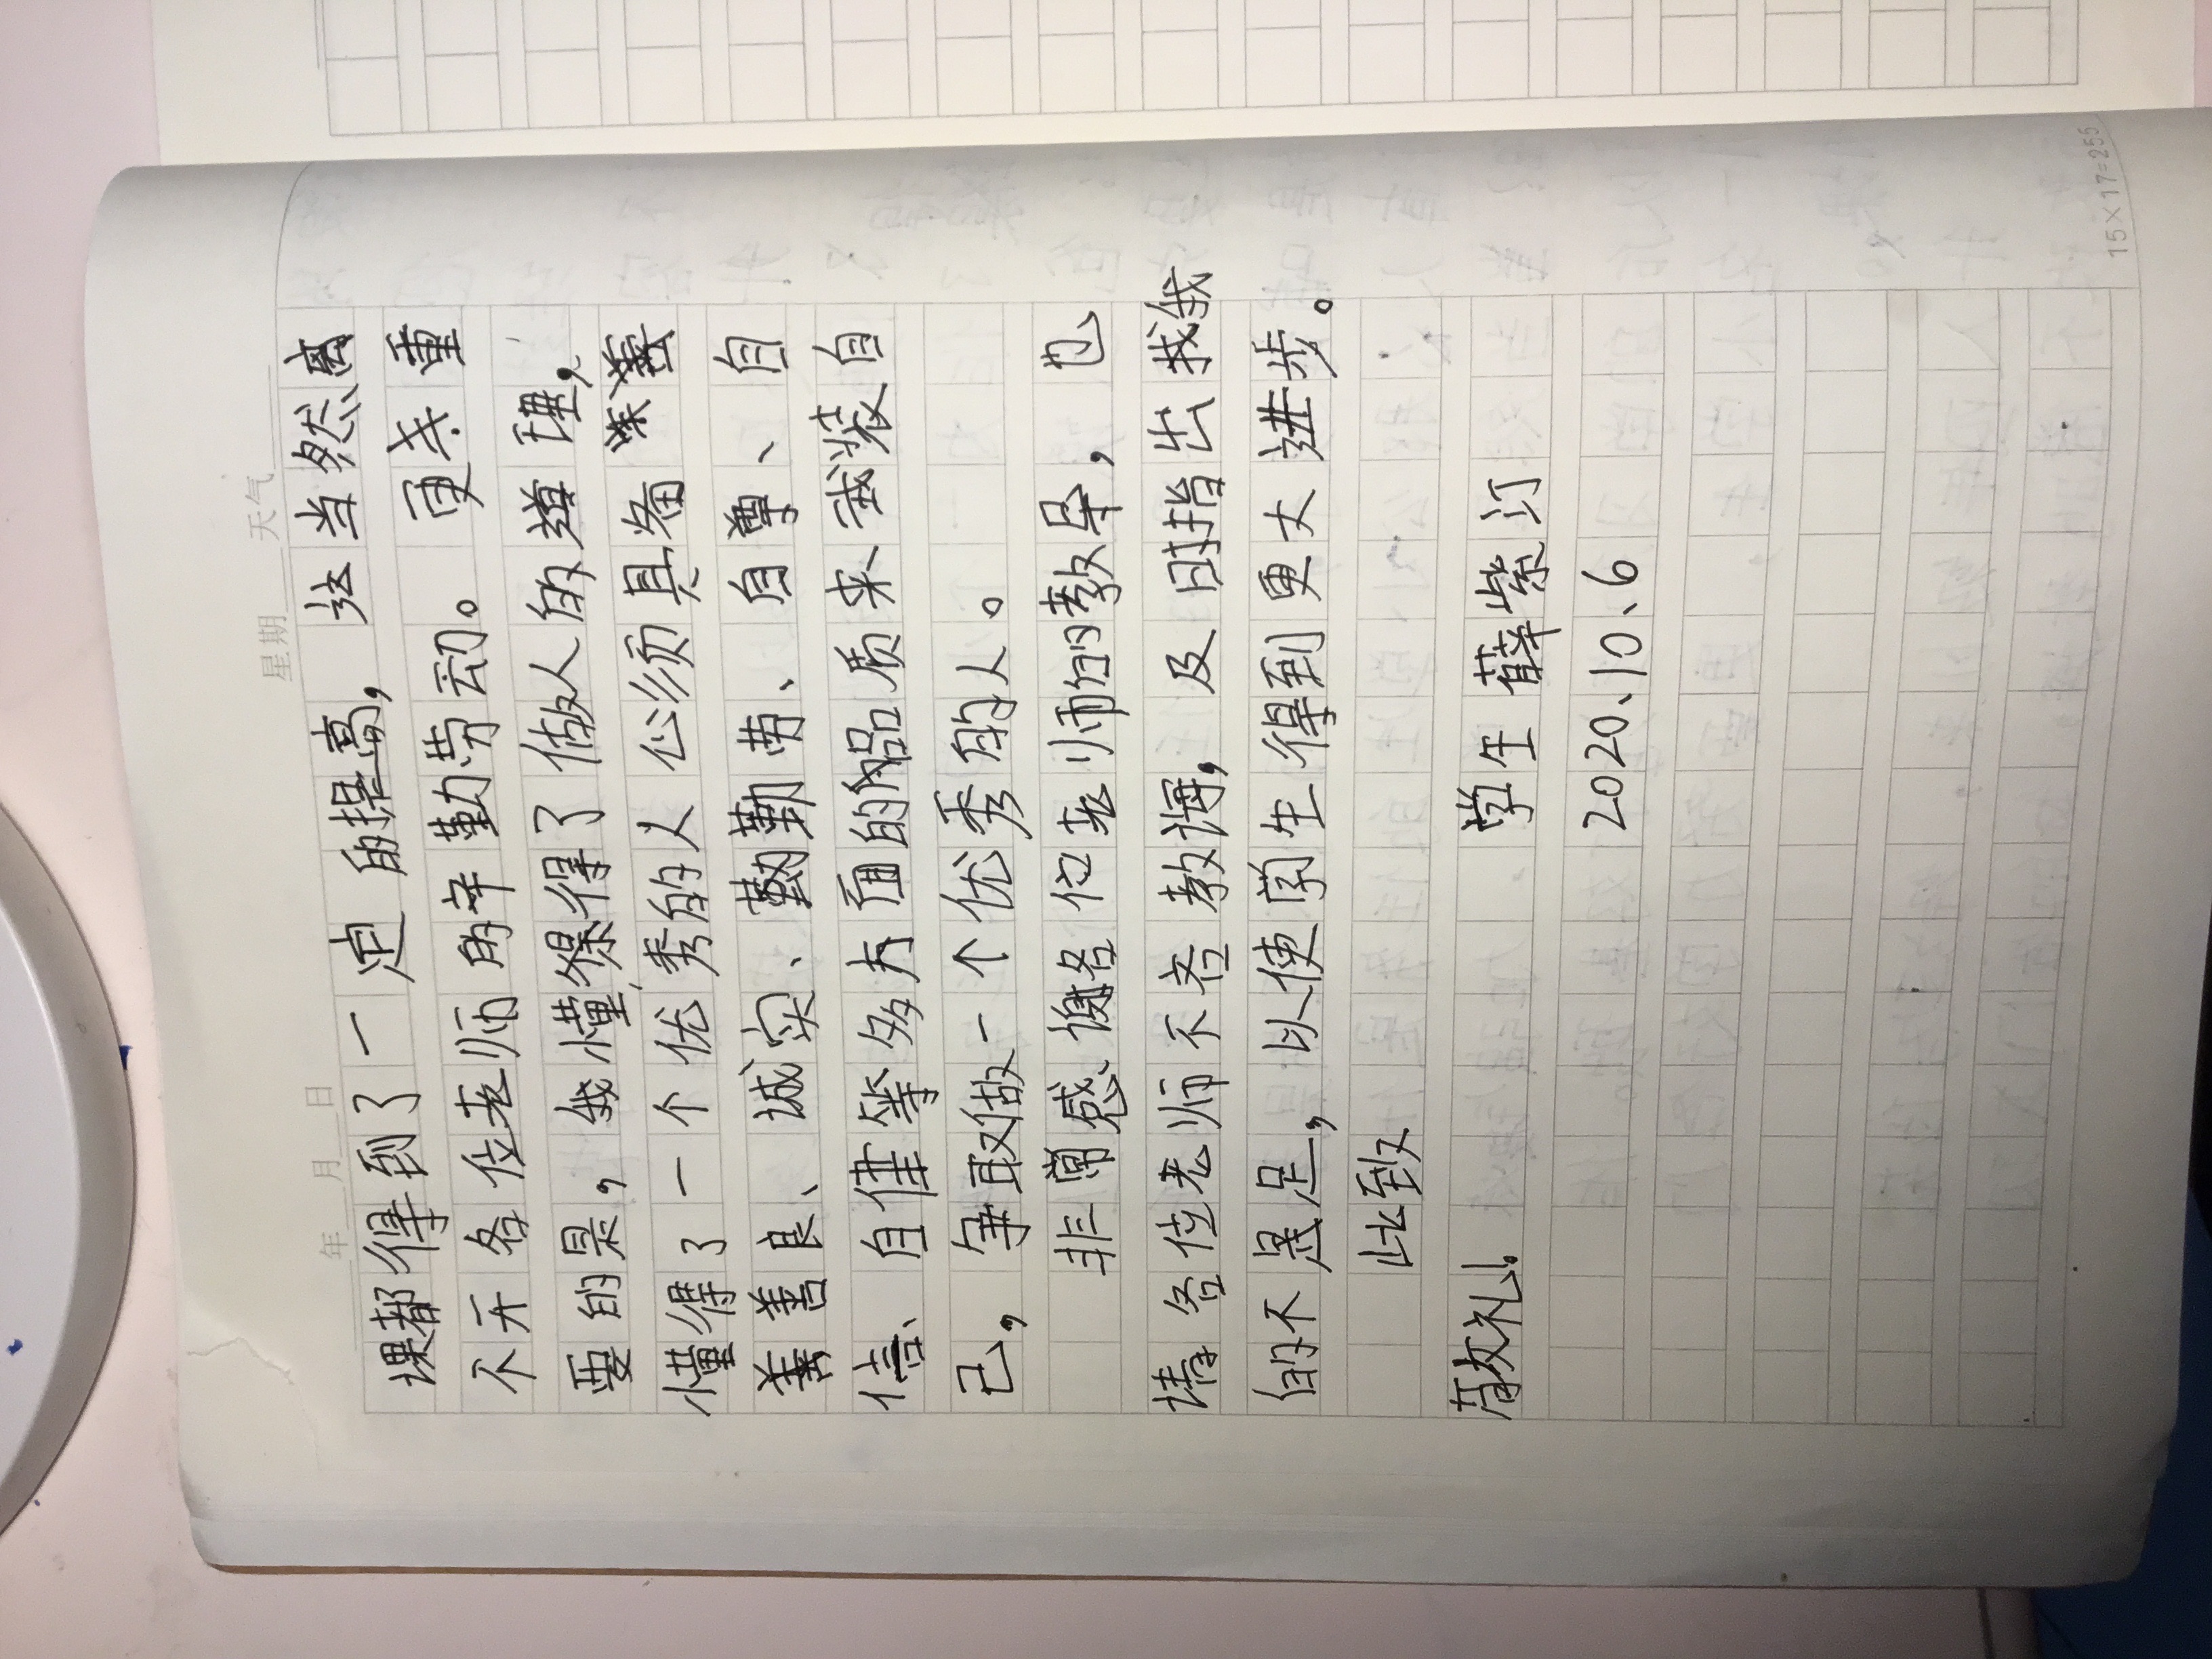 年 月 日 星期 天气
课都得到了一定的提高，这当然离
不开各位老师的辛勤劳动。更未重
要的是，我懂得了做人的道理，
懂得了一个优秀的人必须具备
善良、诚实、勤劳、自尊、自
信、自律等多方面的品质来武装自
己，争取做一个优秀的人。
非常感谢各位老师的教导，也
请各位老师不吝教诲，及时指出我
的不足，以使学生得到更大进步。
此致
敬礼！
学生 薛紫汀
2020、10、6
15×17=255